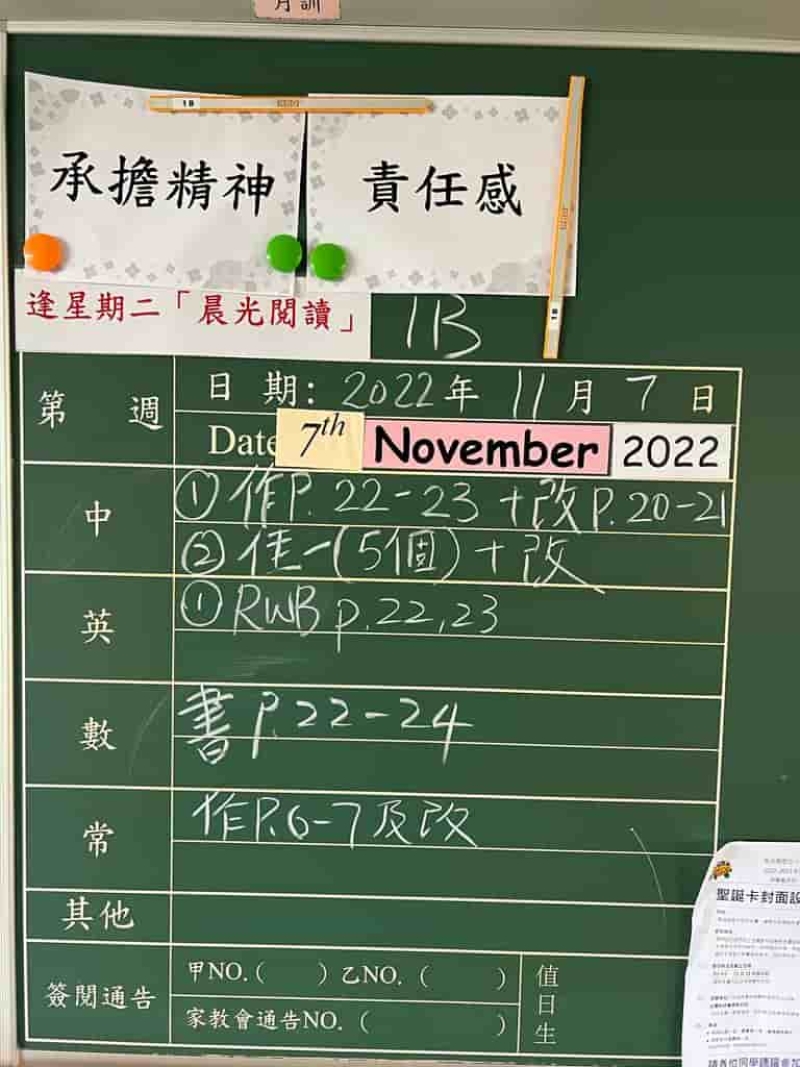 月訓
1B
承擔精神
責任感
1B
逢星期二「晨光閱讀」
1B
第 週
日 期: 2022年 11月 7日
Date 7th November 2022
中
① 作P. 22-23 +改P. 20-21
② 佳一(5個) + 改
英
① RWB p.22,23
數
書 P.22-24
常
作P.6-7及改
其他
簽閱通告
甲NO.( ) 乙NO. ( )
家教會通告NO. ( )
值日生
聖誕卡封面設
請各位同學踴躍參加